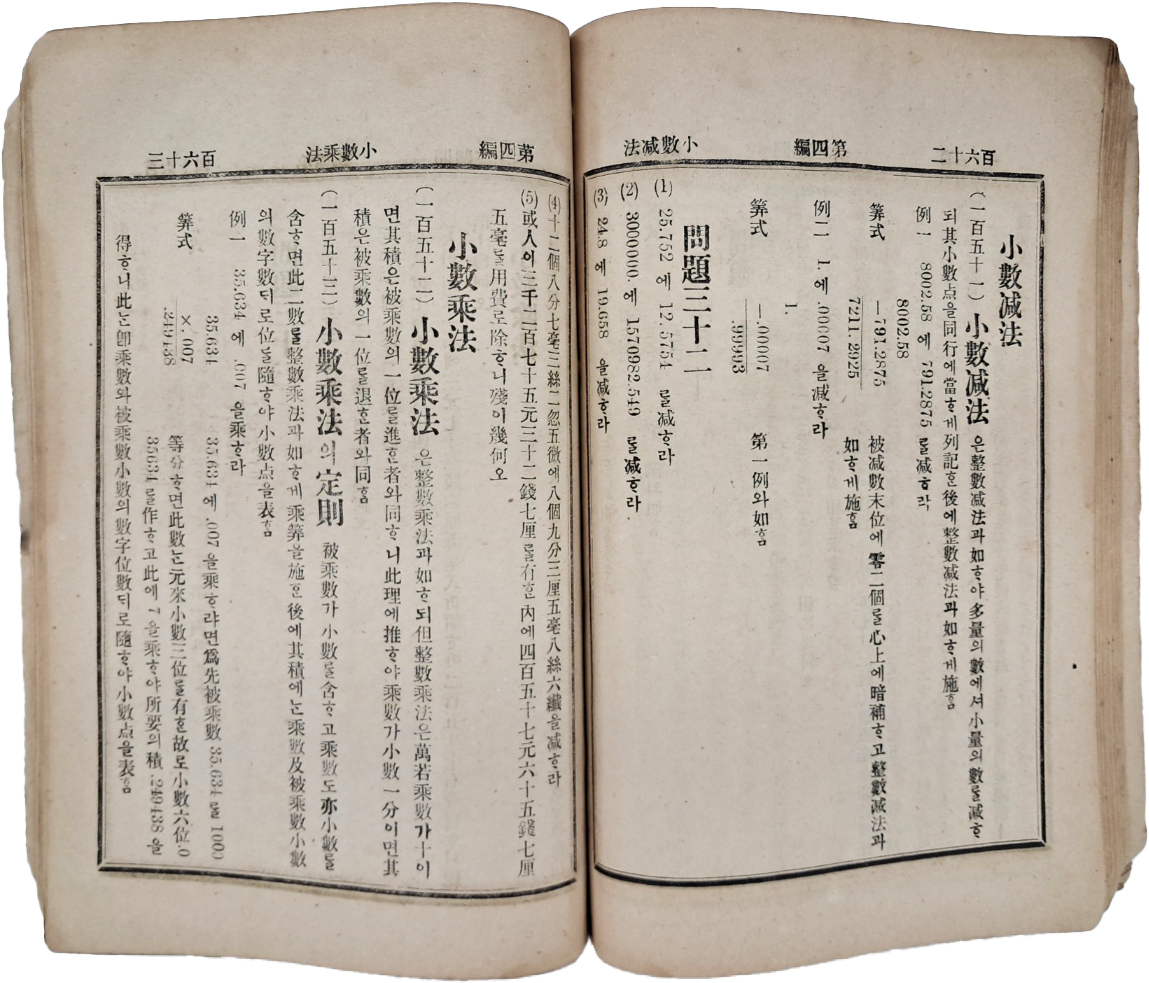 百六十二 第四編 小數减法
小數减法
(一百五十一) 小數减法 은整數减法과如ᄒᆞ야多量의數에셔小量의數를减ᄒᆞ
되其小數点을同行에當ᄒᆞ게列記ᄒᆞᆫ後에整數减法과如ᄒᆞ게施ᄒᆞᆷ
例一 8002.58 에 791.2875 를减ᄒᆞ라
8002.58
筭式 —791.2875
7211.2925
被减數末位에零二個를心上에暗補ᄒᆞ고整數减法과
如ᄒᆞ게施ᄒᆞᆷ
例二 1.에 .00007 을减ᄒᆞ라
1.
筭式 —.00007
.99993
第一例와如ᄒᆞᆷ
問題三十二
(1) 25.752 에 12.5754 를减ᄒᆞ라
(2) 3000000.에 1570982.549 를减ᄒᆞ라
(3) 24.8 에 19.658 을减ᄒᆞ라
第四編 小數乘法 百六十三
(4) 十二個八分七毫三絲二忽五微에八個九分三厘五毫八絲六纖을减ᄒᆞ라
(5) 或人이三千二百七十五元三十二錢七厘를有ᄒᆞᆫ內에四百五十七元六十五錢七厘
五毫를用費로除ᄒᆞ니殘이幾何오
小數乘法
(一百五十二) 小數乘法 은整數乘法과如ᄒᆞ되但整數乘法은萬若乘數가十이
면其積은被乘數의一位를進ᄒᆞᆫ者와同ᄒᆞ니此理에推ᄒᆞ야乘數가小數一分이면其
積은被乘數의一位를退ᄒᆞᆫ者와同ᄒᆞᆷ
(一百五十三) 小數乘法의定則 被乘數가小數를含ᄒᆞ고乘數도亦小數를
含ᄒᆞ면此二數를整數乘法과如ᄒᆞ게乘筭을施ᄒᆞᆫ後에其積에ᄂᆞᆫ乘數及被乘數小數
의數字數ᄃᆡ로位를隨ᄒᆞ야小數点을表ᄒᆞᆷ
例一 35.634 에 .007 을乘ᄒᆞ라
35.634
筭式 ×.007
.249438
35.634 에 .007 을乘ᄒᆞ랴면爲先被乘數 35.634 를 1000
等分ᄒᆞ면此數ᄂᆞᆫ元來小數三位를有ᄒᆞᆫ故로小數六位.0
35634 를作ᄒᆞ고此에 7 을乘ᄒᆞ야所要의積 .249438 을
得ᄒᆞ니此ᄂᆞᆫ卽乘數와被乘數小數의數字位數ᄃᆡ로隨ᄒᆞ야小數点을表ᄒᆞᆷ